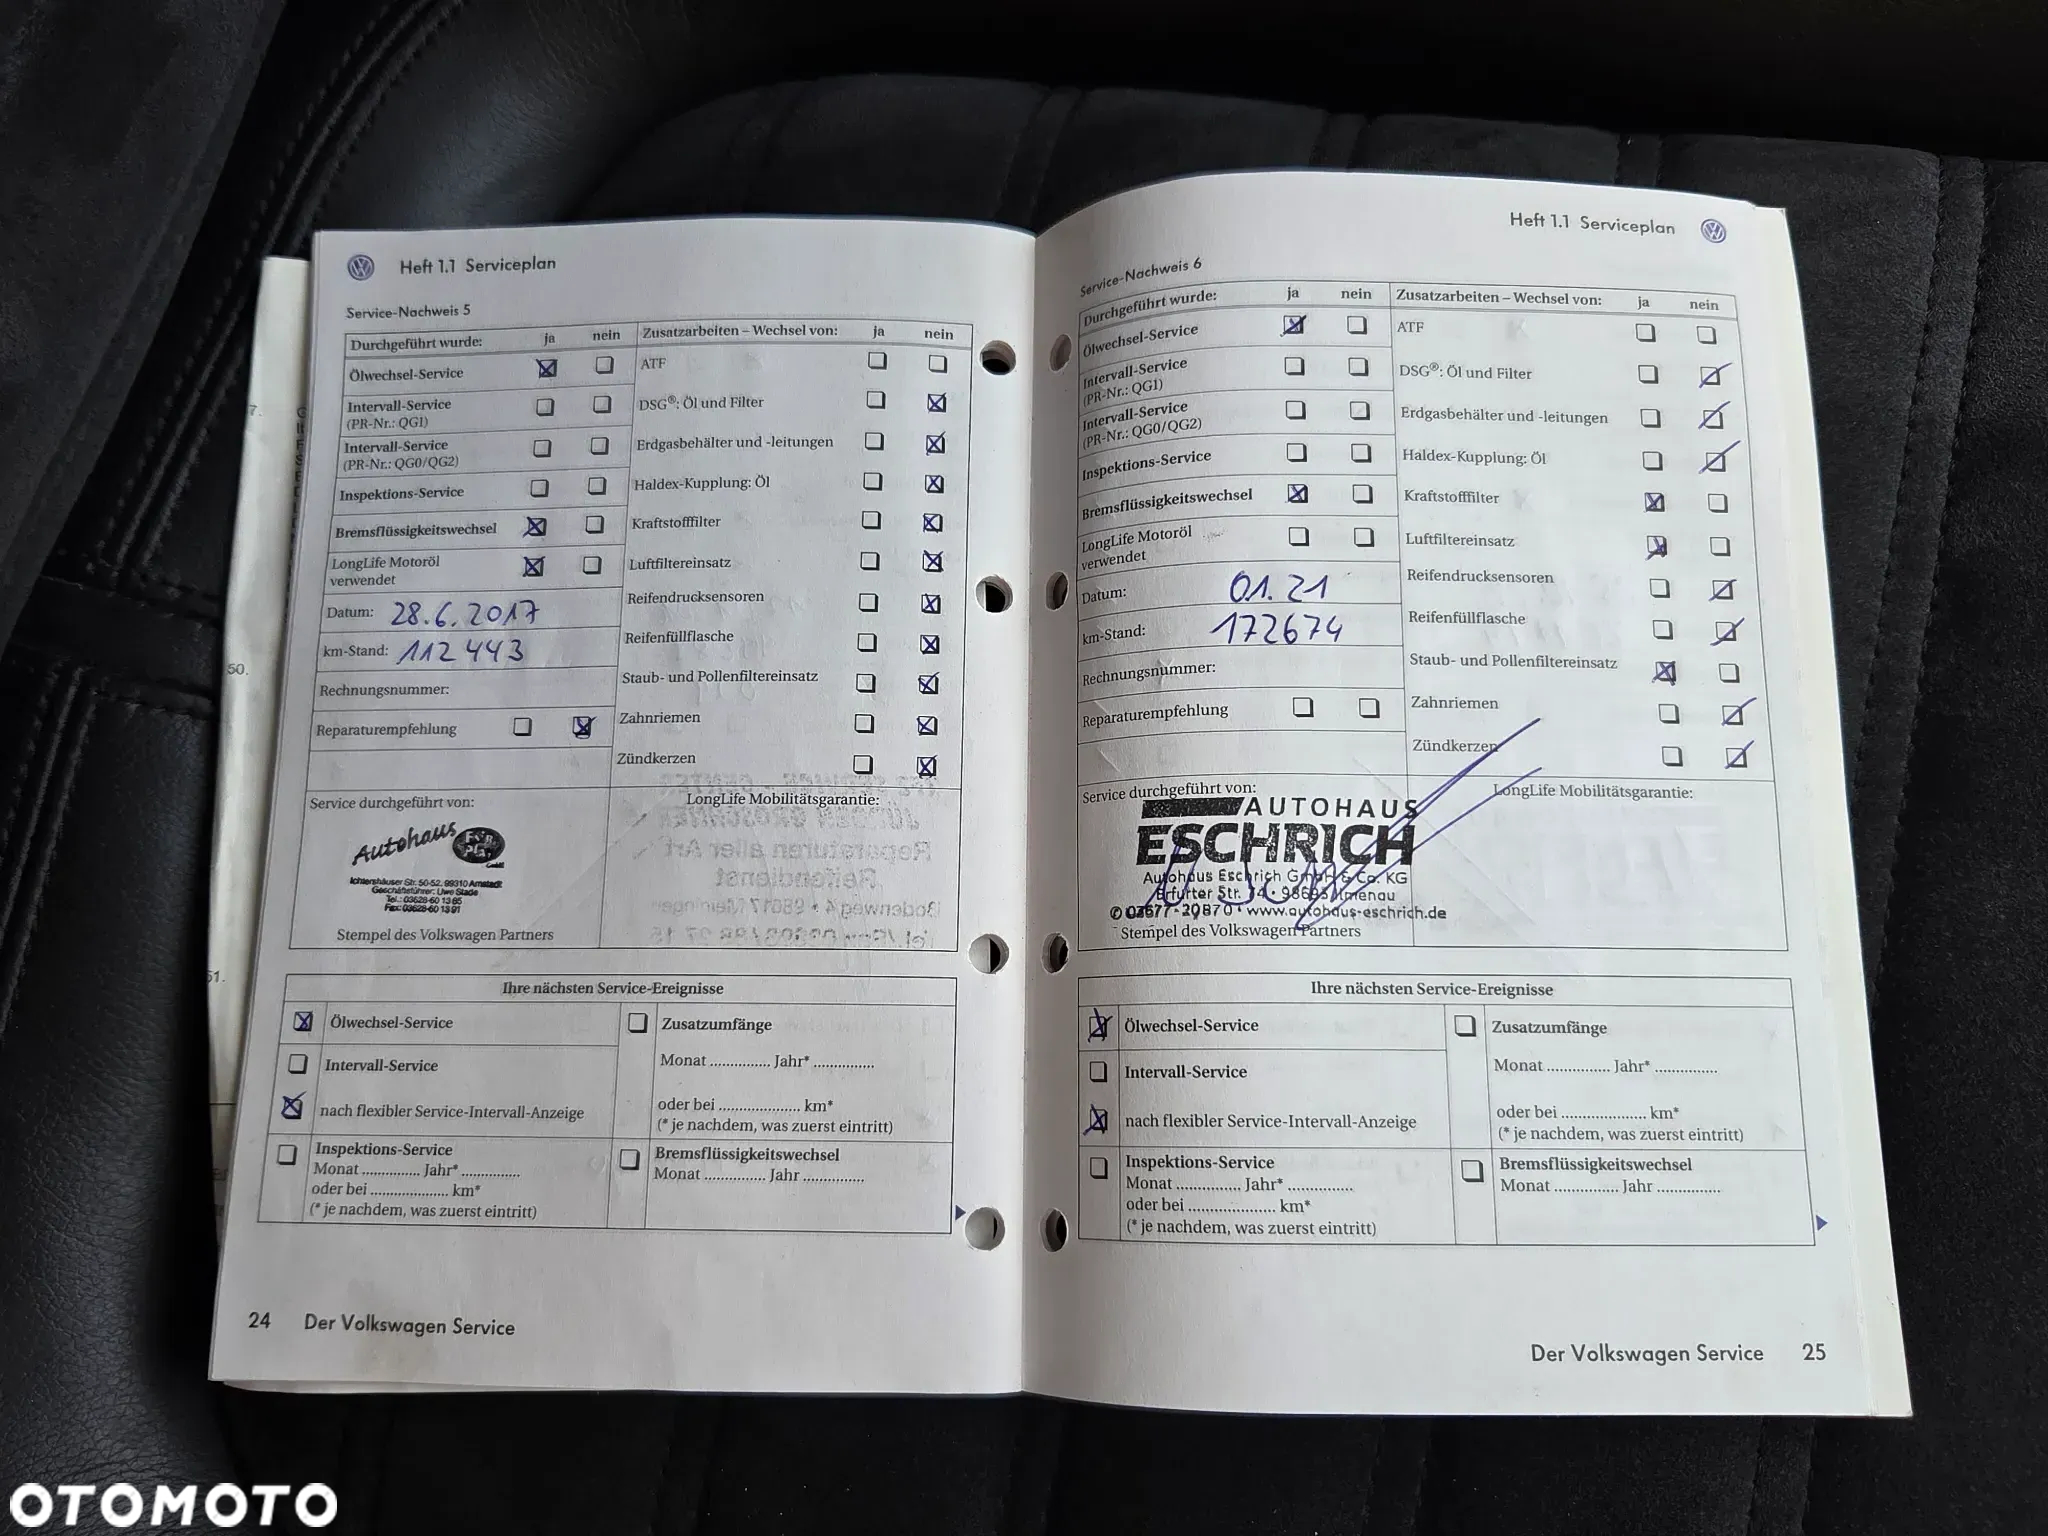 Heft 1.1 Serviceplan
Service-Nachweis 5
Durchgeführt wurde: ja nein
Ölwechsel-Service
Intervall-Service
(PR-Nr.: QG1)
Intervall-Service
(PR-Nr.: QG0/QG2)
Inspektions-Service
Bremsflüssigkeitswechsel
LongLife Motoröl
verwendet
Datum: 28.6.2017
km-Stand: 112 443
Rechnungsnummer:
Reparaturempfehlung
Zusatzarbeiten – Wechsel von: ja nein
ATF
DSG®: Öl und Filter
Erdgasbehälter und -leitungen
Haldex-Kupplung: Öl
Kraftstofffilter
Luftfiltereinsatz
Reifendrucksensoren
Reifenfüllflasche
Staub- und Pollenfiltereinsatz
Zahnriemen
Zündkerzen
Service durchgeführt von:
Autohaus
Ichtershäuser Str. 50-52, 99310 Arnstadt
Geschäftsführer: Uwe Stade
Tel.: 03628-60 13 85
Fax: 03628-60 13 91
Stempel des Volkswagen Partners
LongLife Mobilitätsgarantie:
Ihre nächsten Service-Ereignisse
Ölwechsel-Service
Intervall-Service
nach flexibler Service-Intervall-Anzeige
Inspektions-Service
Monat .............. Jahr* ..............
oder bei .................... km*
(* je nachdem, was zuerst eintritt)
Zusatzumfänge
Monat .............. Jahr* ..............
oder bei .................... km*
(* je nachdem, was zuerst eintritt)
Bremsflüssigkeitswechsel
Monat .............. Jahr ..............
24 Der Volkswagen Service
Heft 1.1 Serviceplan
Service-Nachweis 6
Durchgeführt wurde: ja nein
Ölwechsel-Service
Intervall-Service
(PR-Nr.: QG1)
Intervall-Service
(PR-Nr.: QG0/QG2)
Inspektions-Service
Bremsflüssigkeitswechsel
LongLife Motoröl
verwendet
Datum: 01.21
km-Stand: 172674
Rechnungsnummer:
Reparaturempfehlung
Zusatzarbeiten – Wechsel von: ja nein
ATF
DSG®: Öl und Filter
Erdgasbehälter und -leitungen
Haldex-Kupplung: Öl
Kraftstofffilter
Luftfiltereinsatz
Reifendrucksensoren
Reifenfüllflasche
Staub- und Pollenfiltereinsatz
Zahnriemen
Zündkerzen
Service durchgeführt von:
AUTOHAUS
ESCHRICH
Autohaus Eschrich GmbH & Co. KG
Erfurter Str. 14 • 98693 Ilmenau
www.autohaus-eschrich.de
Stempel des Volkswagen Partners
LongLife Mobilitätsgarantie:
Ihre nächsten Service-Ereignisse
Ölwechsel-Service
Intervall-Service
nach flexibler Service-Intervall-Anzeige
Inspektions-Service
Monat .............. Jahr* ..............
oder bei .................... km*
(* je nachdem, was zuerst eintritt)
Zusatzumfänge
Monat .............. Jahr* ..............
oder bei .................... km*
(* je nachdem, was zuerst eintritt)
Bremsflüssigkeitswechsel
Monat .............. Jahr ..............
Der Volkswagen Service 25
50.
51.
OTOMOTO